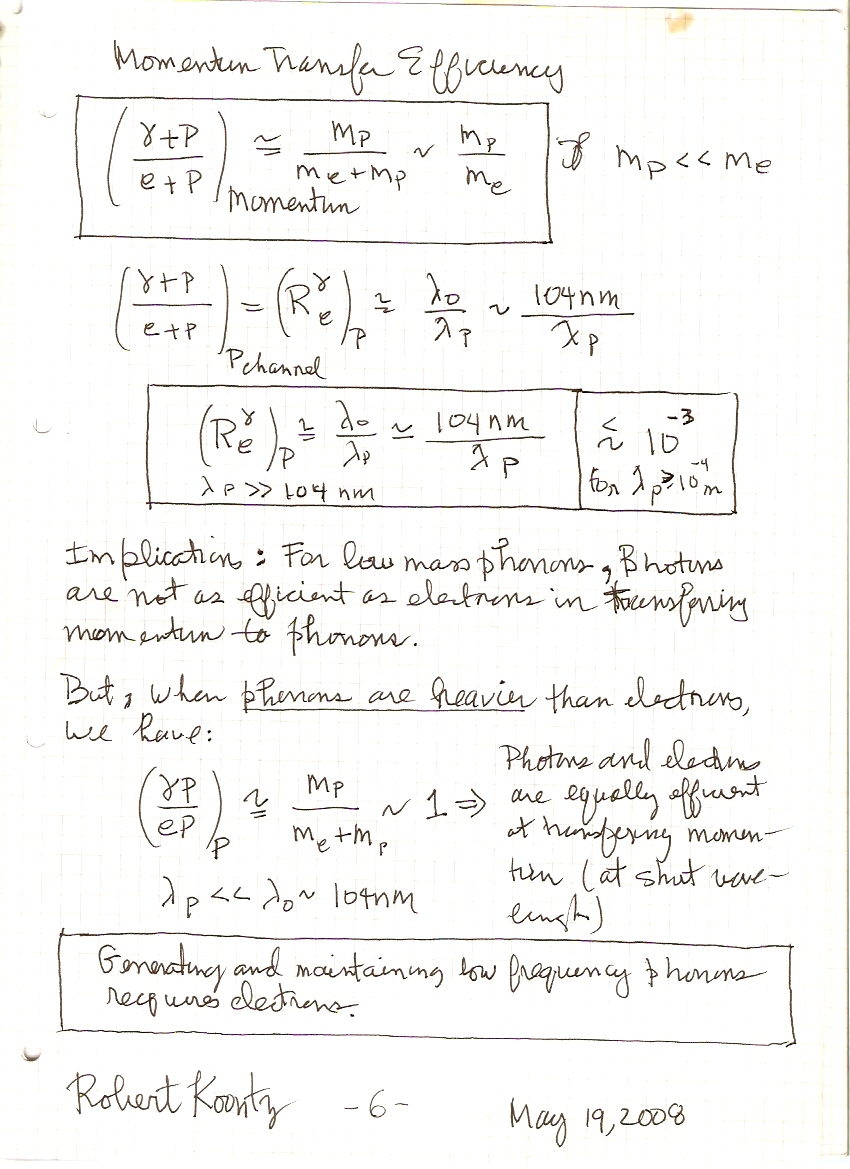 Momentum Transfer Efficiency
((γ+P)/(e+P))Momentum ≃ mp/(me+mp) ~ mp/me If mp << me
((γ+P)/(e+P))P channel = (Reγ)P ≃ λ0/λP ~ 104nm/λP
(Reγ)P ≃ λ0/λP ≃ 104nm/λP ≲ 10^-3
λP >> 104 nm For λP ≥ 10^-4 m
Implication: For low mass phonons, Photons
are not as efficient as electrons in transferring
momentum to phonons.
But, when phonons are heavier than electrons,
we have:
(γP/eP)P ≃ mp/(me+mp) ~ 1 ⇒
λP << λ0 ~ 104nm
Photons and electrons
are equally efficient
at transfering momen-
tum (at short wave-
length)
Generating and maintaining low frequency phonons
requires electrons.
Robert Koontz -6- May 19, 2008